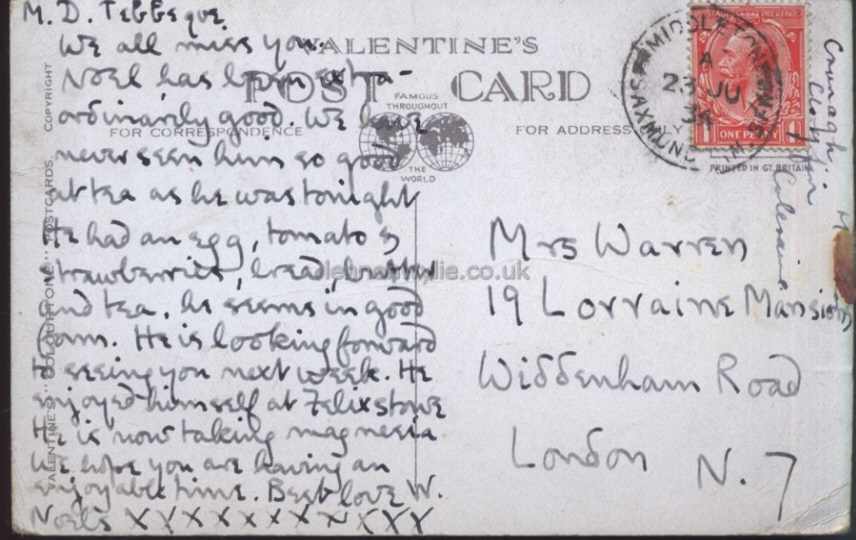 M. D.
We all miss you.
Noel has been extra-
ordinarily good. We have
never seen him so good
at tea as he was tonight
He had an egg, tomato &
strawberries, bread, butter
and tea. he seems in good
form. He is looking forward
to seeing you next week. He
enjoyed himself at Felixstowe
He is now taking magnesia
We hope you are having an
enjoyable time. Best love W.
Noel's XXXXXXXXXXX
VALENTINE'S
POST CARD
FAMOUS
THROUGHOUT
THE
WORLD
FOR CORRESPONDENCE
FOR ADDRESS ONLY
COPYRIGHT
VALENTINE'S "COLOURTONE" POSTCARDS.
MIDDLETON
SAXMUNDHAM
A
23 JU
34
POSTAGE REVENUE
ONE PENNY
PRINTED IN GT. BRITAIN
Mrs Warren
19 Lorraine Mansions
Widdenham Road
London N.7